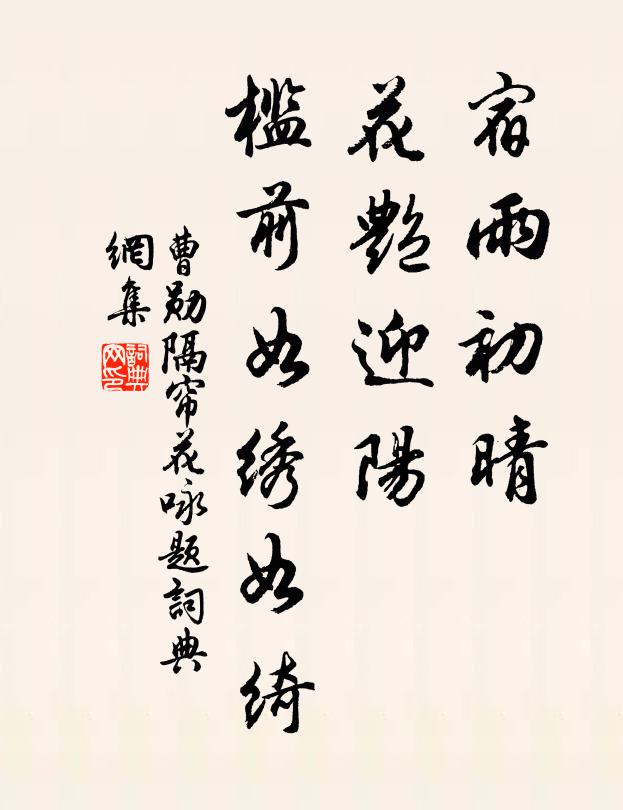 宿雨初晴
花艷迎陽
檻前如綉如綺
曹勛隔帘花咏題詞典
網集
詞典
网印